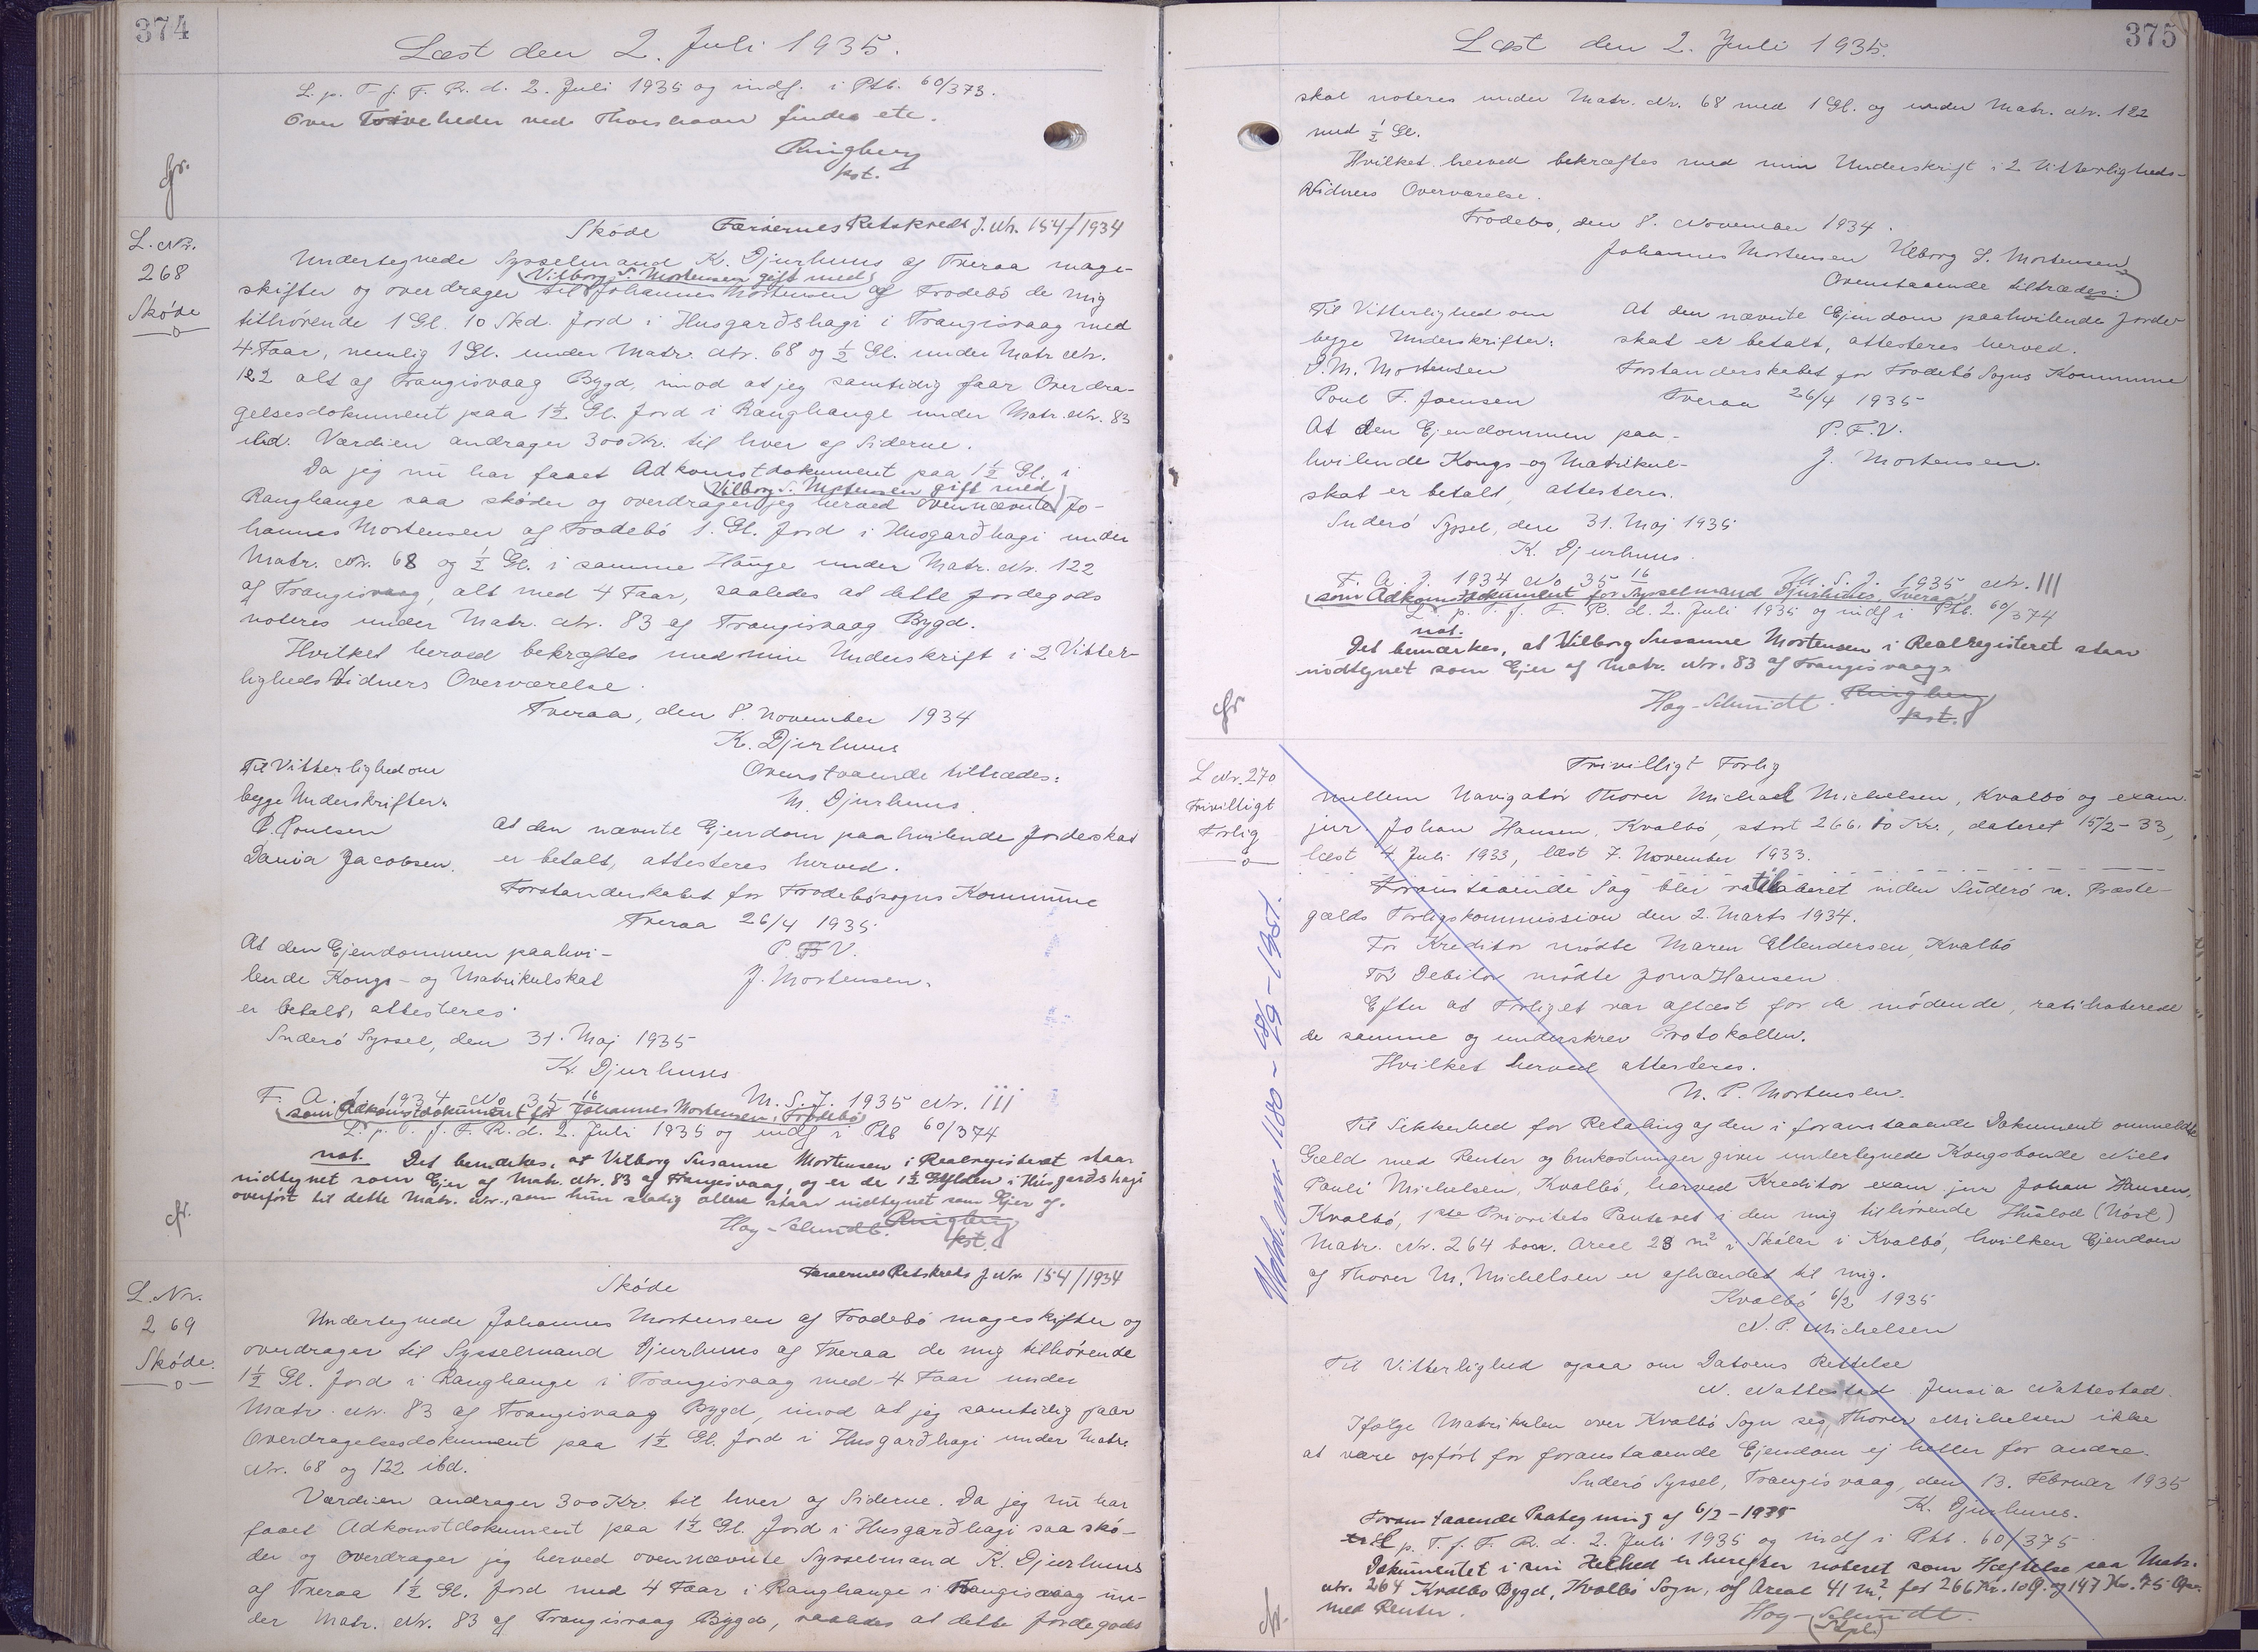 374
Læst den 2. Juli 1935.
L. p. T. f. F. R. d. 2. Juli 1935 og indf. i Ptb. 60/373.
Over Tvivelheder ved Thorshavn findes etc.
Ringberg
kst.
cfr.
L. Nr.
268
Skóde
Skóde Færøernes Retskreds J. Nr. 154/1934
Undertegnede Sysselmand K. Djurhuus af Tveraa mage-
Vilborg S. Mortensen gift med
skifter og overdrager til Johannes Mortensen af Frodebó de mig
tilhørende 1 Gl. 10 Skd. Jord i Husgarðshagi i Trangisvaag med
4 Faar, nemlig 1 Gl. under Matr. Nr. 68 og ½ Gl. under Matr. Nr.
122 alt af Trangisvaag Bygd, imod at jeg samtidig faar Overdra-
gelsesdokument paa 1½ Gl. Jord i Ranghange under Matr. Nr. 83
ibid. Værdien andrager 300 Kr. til hver af Siderne.
Da jeg nu har faaet Adkomstdokument paa 1½ Gl. i
Vilborg S. Mortensen gift med
Ranghange saa skóder og overdrager jeg herved ovennævnte Jo-
hannes Mortensen af Frodebó 1. Gl. Jord i Husgarðhagi under
Matr. Nr. 68 og ½ Gl. i samme Hauge under Matr. Nr. 122
af Trangisvaag, alt med 4 Faar, saaledes at dette Jordegods
noteres under Matr. Nr. 83 af Trangisvaag Bygd.
Hvilket herved bekræftes med min Underskrift i 2 Vitter-
ligheds Vidners Overværelse.
Tveraa, den 8. November 1934
K. Djurhuus
Til Vitterlighed om
Ovenstaaende tiltrædes:
begge Underskrifter:
M. Djurhuus.
P. Poulsen
At den nævnte Ejendom paahvilende Jordeskat
Dania Jacobsen.
er betalt, attesteres herved.
Forstanderskabet for Frodebósogns Kommune
Tveraa 26/4 1935
At den Ejendommen paahvi-
P. F. V.
lende Kongs- og Matrikulskat
J. Mortensen.
er betalt, attesteres
Suderó Syssel, den 31. Maj 1935
K. Djurhuus
F. A. J. 1934 No 35 16 M. S. J. 1935 Nr. 111
som Adkomstdokument for Johannes Mortensen, Frodebó
L. p. T. f. F. R. d. 2. Juli 1935 og indf i Ptb 60/374
not. Det bemærkes, at Vilborg Susanne Mortensen i Realregisteret staar
nidtegnet som Ejer af Matr. Nr. 83 af Trangisvaag, og er de 1½ Gylden i Húsgarðshagi
overfört til dette Matr. Nr., som hun stadig alene staar nidtegnet som Ejer af.
Hoy-Schmidt. Ringberg
kst.
cfr.
L. Nr.
269
Skóde.
Skóde Færøernes Retskreds J Nr. 154/1934
Undertegnede Johannes Mortensen af Frodebó mageskifter og
overdrager til Sysselmand Djurhuus af Tveraa de mig tilhørende
1½ Gl. Jord i Ranghange i Trangisvaag med 4 Faar under
Matr. Nr. 83 af Trangisvaag Bygd, imod at jeg samtidig faar
Overdragelsesdokument paa 1½ Gl. Jord i Husgarðhagi under Matr.
Nr. 68 og 122 ibd.
Værdien andrager 300 Kr. til hver af Siderne. Da jeg nu har
faaet Adkomstdokument paa 1½ Gl. Jord i Husgarðhagi saa skó-
der og overdrager jeg herved ovennævnte Sysselmand K. Djurhuus
af Tveraa 1½ Gl. Jord med 4 Faar i Ranghange i Trangisvaag un-
der Matr. Nr. 83 af Trangisvaag Bygd, saaledes at dette Jordegods
375
Læst den 2. Juli 1935.
skal noteres under Matr. Nr. 68 med 1 Gl. og under Matr. Nr. 122
med ½ Gl.
Hvilket herved bekræftes med min Underskrift i 2 Vitterligheds-
Vidners Overværelse.
Frodebo, den 8. November 1934.
Johannes Mortensen Vilborg S. Mortensen
Ovenstaaende tiltrædes:
Til Vitterlighed om
At den nævnte Ejendom paahvilende Jorde
begge Underskrifter:
skat er betalt, attesteres herved.
S. M. Mortensen
Forstanderskabet for Frodebó Sogns Kommune
Poul F. Joensen
Tveraa 26/4 1935
At den Ejendommen paa-
P. F. V.
hvilende Kongs- og Matrikul-
J. Mortensen.
skat er betalt, attesteres.
Suderó Syssel, den 31. Maj 1935
K. Djurhuus.
F. A. J. 1934 No 35 16 M. S. J. 1935 Nr. 111
som Adkomstdokument for Sysselmand Djurhuus, Tveraa
L. p. T. f. F. R. d. 2. Juli 1935 og indf i Ptb. 60/374
not.
Det bemærkes, at Vilborg Susanne Mortensen i Realregisteret staar
nidtegnet som Ejer af Matr. Nr. 83 af Trangisvaag.
Hoy-Schmidt. Ringberg
kst.
cfr
L Nr. 270
Frivilligt
Forlig
Frivilligt Forlig
mellem Navigatör Thorer Michael Michelsen, Kvalbó og exam.
jur. Johan Hansen, Kvalbó, stort 266.10 Kr., dateret 15/2-33,
læst 4 Juli 1933, læst 7. November 1933.
Foranstaaende Sag blev ratihaberet inden Suderó n. Præste-
gælds Forligskommission den 2. Marts 1934.
For Kreditor mødte Maren Ellendersen, Kvalbó
For Debitor mødte Jona Hansen
Efter at Forliget var aflæst for de mødende, ratihaberede
de samme og underskrev Protokollen.
Hvilket herved attesteres.
N. P. Mortensen.
Til Sikkerhed for Betaling af den i foranstaaende Dokument ommeldte
Gæld med Renter og Omkostninger giver undertegnede Kongsbonde Niels
Pauli Michelsen, Kvalbó, herved Kreditor exam. jur Johan Hansen,
Kvalbó, 1ste Prioritets Panteret i den mig tilhørende Huslod (Nóst)
Matr. Nr. 264 Areal 28 m² i Skálar i Kvalbó, hvilken Ejendom
af Thorer M. Michelsen er afhændet til mig.
Kvalbó 6/2 1935
N. P. Michelsen
Til Vitterlighed ogsaa om Datoens Rettelse
N. Nattestad Jensia Nattestad.
Ifølge Matrikulen over Kvalbó Sogn ses Thorer Michelsen ikke
at være opført for foranstaaende Ejendom ej heller for andre.
Suderó Syssel, Trangisvaag, den 13. Februar 1935
K. Djurhuus.
Foranstaaende Paategning af 6/2-1935
L p. T. f. F. R. d. 2. Juli 1935 og indf i Ptb. 60/375
Dokumentet i sin Helhed er herefter noteret som Hæftelse paa Matr.
Nr. 264 Kvalbó Bygd, Kvalbó Sogn, af Areal 41 m², for 266 Kr. 10 Ø. og 147 Kr. 75 Øre
med Renter.
Hoy-Schmidt.
(Stpl.)
cfr.